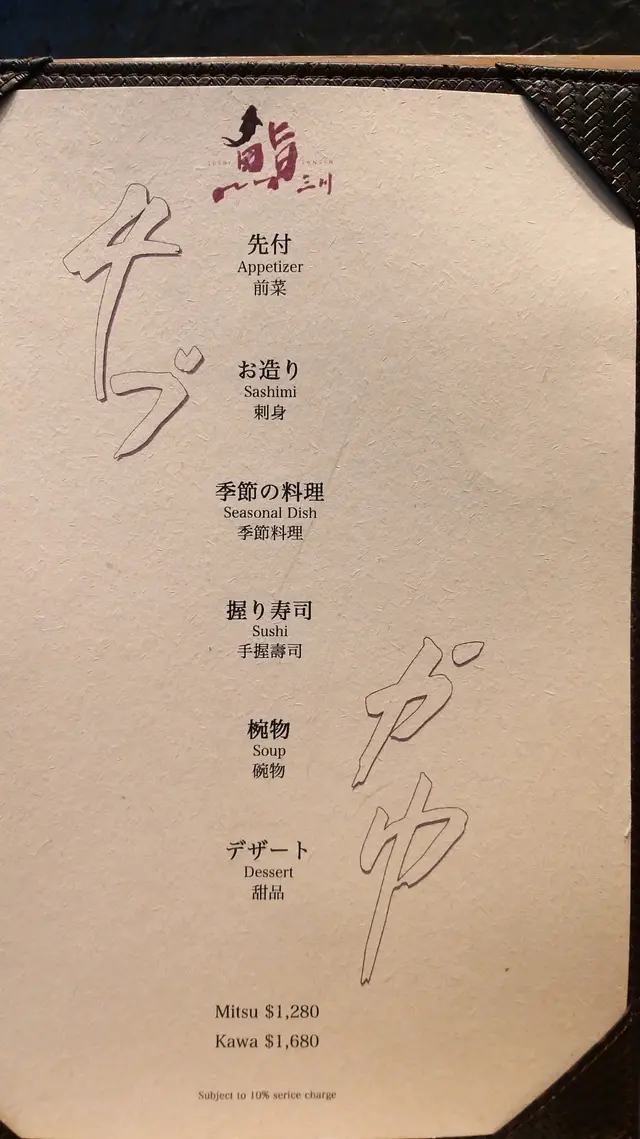 鮨
三川
先付
Appetizer
前菜
お造り
Sashimi
刺身
季節の料理
Seasonal Dish
季節料理
握り寿司
Sushi
手握壽司
椀物
Soup
碗物
デザート
Dessert
甜品
Mitsu $1,280
Kawa $1,680
Subject to 10% serice charge